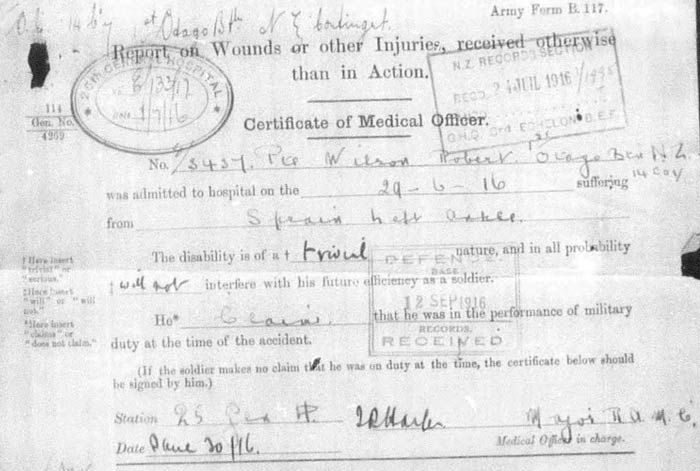 Army Form B. 117.
O.C. 14 Coy 1st Otago Btn N Z Contingent
Report on Wounds or other Injuries, received otherwise
than in Action.
25TH GENERAL HOSPITAL
N.Z. RECORDS SECTION
RECD. 24 JUL 1916
G.H.Q. 3rd ECHELON B.E.F.
114
Gen. No.
4269
Certificate of Medical Officer.
No. Pte Wilson Robert. Otago Btn N.Z.
14 Coy
was admitted to hospital on the 29-6-16 suffering
from Sprain Left Ankle.
The disability is of a † trivial nature, and in all probability
‡ will not interfere with his future efficiency as a soldier.
† Here insert
"trivial" or
"serious."
‡ Here insert
"will" or "will
not."
* Here insert
"claims" or
"does not claim."
DEFENCE
BASE
12 SEP 1916
RECORDS.
RECEIVED
He* Claims that he was in the performance of military
duty at the time of the accident.
(If the soldier makes no claim that he was on duty at the time, the certificate below should
be signed by him.)
Station 25 Gen H. Major R.A.M.C.
Date June 30/16. Medical Officer in charge.